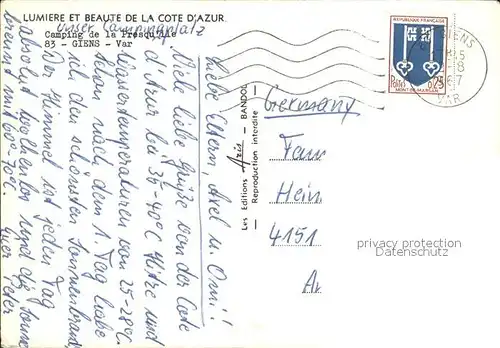 LUMIERE ET BEAUTE DE LA COTE D'AZUR
unser Campingplatz
Camping de la Presqu'ile
83 - GIENS - Var
Liebe Eltern, Axel u. Omi!!
Viele liebe Grüße von der Cote
d'Azur bei 35-40°C Hitze und
Wassertemperaturen von 25-28°C
schon nach dem 1. Tag habe
ich den schönsten Sonnenbrand,
Der Himmel ist jeden Tag
absolut wolkenlos und die Sonne
brennt mit 60-70°C.
Euer Peter
Les Editions Aris - BANDOL
Reproduction interdite
Germany
Fam
Hein
4151
REPUBLIQUE FRANÇAISE
Postes 0,25
MONT-DE-MARSAN
GIENS
VAR
privacy protection
Datenschutz